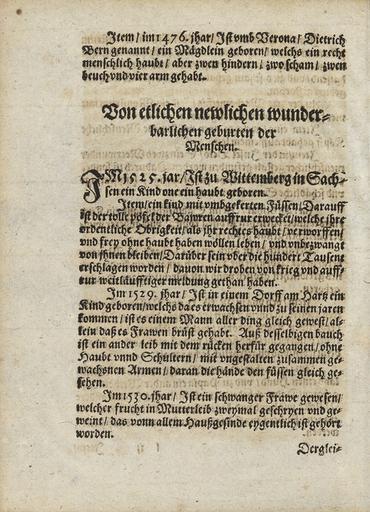 Item / im 1476. jhar / Ist vmb Verona / Dietrich
Bern genannt / ein Mägdlein geboren / welchs ein recht
menschlich haubt / aber zwen hindern / zwo scham / zwen
beuch vnd vier arm gehabt.
Von etlichen newlichen wunder-
barlichen geburten der
Menschen.
IM 1525. jar / Ist zu Wittemberg in Sach-
sen ein Kind one ein haubt geboren.
Item / ein kind mit vmbgekerten Füssen / Darauff
ist der tolle pöfel der Bawren auffrur erwecket / welche jhre
ordentliche Obrigkeit / als jhr rechtes haubt / verworffen /
vnd frey ohne haubt haben wöllen leben / vnd vnbezwangt
von jhnen bleiben / Darüber sein vber die hundert Tausent
erschlagen worden / dauon wir droben von krieg vnd auff-
rur weitläufftiger meldung gethan haben.
Im 1529. jhar / Ist in einem Dorff am Hartz ein
Kind geboren / welchs da es erwachsen vnnd zu seinen jaren
kommen / ist es einem Mann aller ding gleich gewest / al-
lein daß es Frawen brüst gehabt. Auß desselbigen bauch
ist ein ander leib mit dem rücken herfür gegangen / ohne
Haubt vnnd Schultern / mit vngestalten zusammen ge-
wachsnen Armen / daran die hände den füssen gleich ge-
sehen.
Im 1530. jhar / Ist ein schwanger Frawe gewesen /
welcher frucht in Mutterleib zweymal geschryen vnd ge-
weint / das vonn allem Haußgesinde eygentlich ist gehört
worden.
Derglei-